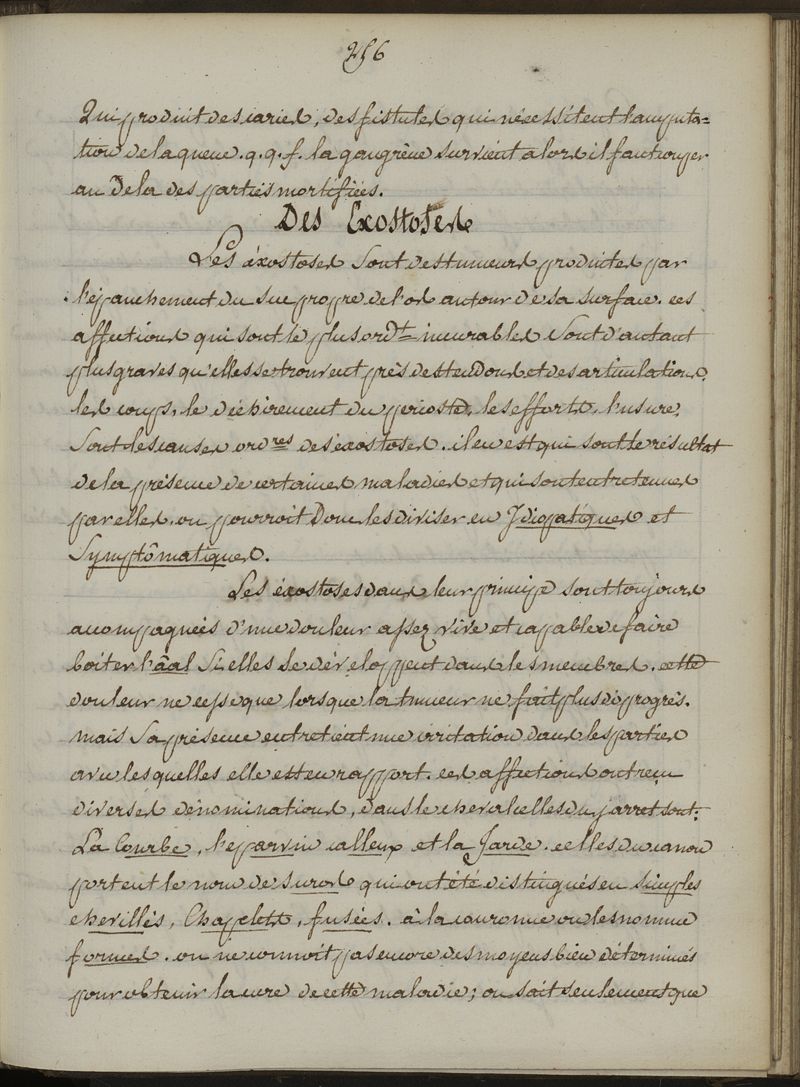 256
Qui produit des caries, des fistules qui nécessitent l'amputa=
tion de la queue. q.q.f. la gangrène survient alors il faut couper
au dela des parties mortifiées.
Des Exostoses
Les éxostoses sont des tumeurs produites par
l'épanchement du suc propre de l'os autour de sa surface. ces
affections qui sont le plus ord.t incurables sont d'autant
plus graves qu'elles se trouvent près des tendons et des articulations,
les coups, le déchirement du perioste, les efforts, l'usure,
sont les causes ord.res des éxostoses. il en est qui sont le résultat
de la présence de certaines maladies et qui sont entretenues
par elles. on pourroit donc les diviser en Idiopatiques et
Symptômatiques.
Les éxostoses dans leur principe sont toujours
accompagnées d'une douleur assez vive et capable de faire
boiter l'âal si elles se développent dans les membres. cette
douleur ne cesse que lorsque la tumeur ne fait plus de progrès.
mais sa présence entretient une irritation dans les parties
avec lesquelles elle est en rapport. ces affections ont reçu
diverses dénominations, dans le cheval celles du jarret sont:
La Courbe, l'eparvin calleux et la Jarde. celles du canon
portent le nom de suros qui ont été distingués en simples
chevillés, Chapelets, fusées. à la couronne on les nomme
formes. on ne connoit pas encore des moyens bien déterminés
pour obtenir la cure de cette maladie; on sait seulement que